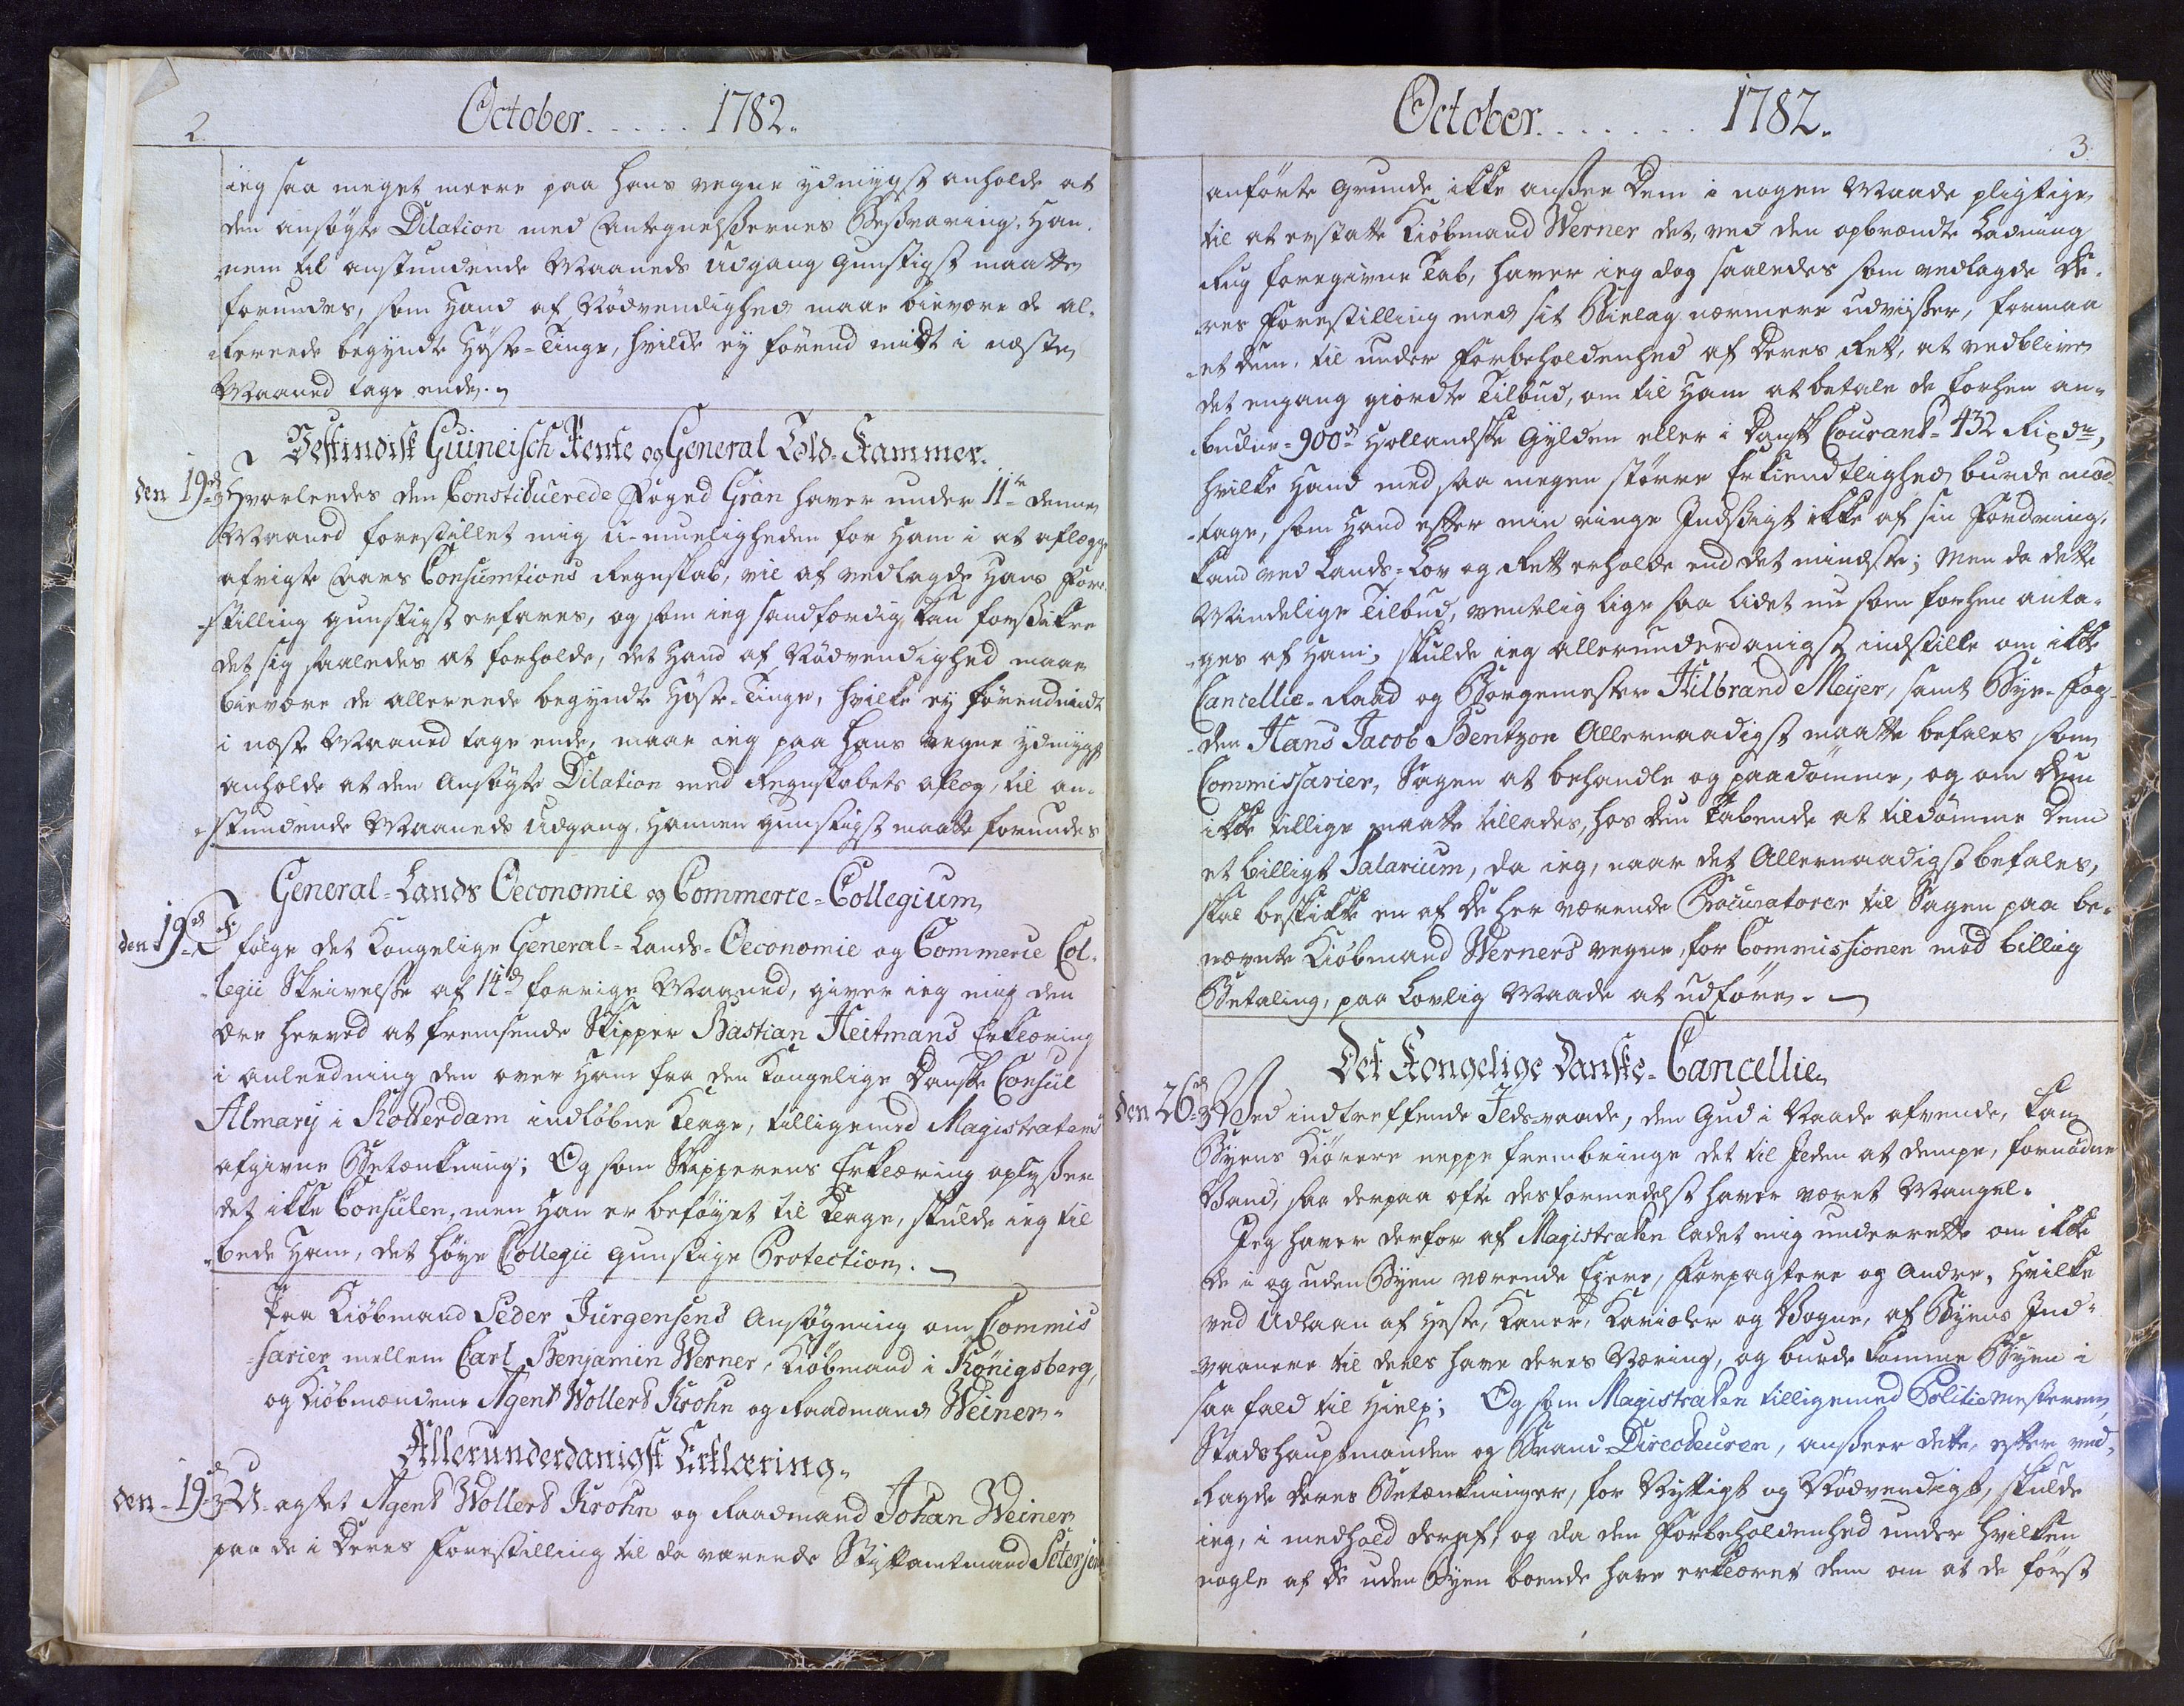 2.
October. . . . . . 1782.
ieg saa meget meere paa hans vegne ydmygst anholde at
den ansøgte Dilation med Antegnelsernes Besvaring, Han-
nem til anstundende Maaneds Udgang gunstigst maatte
forundes, som Hand af Nødvendighed maae bievære de al-
lereede begyndte Høste-Tinge, hvilke ey førend midt i næste
Maaned tage ende.
Vestindisk Guineisch Rente og General Told-Kammer.
den 19de Hvorledes den Constituerede Foged Grøn haver under 11te denne
Maaned forestillet mig u-mueligheden for Ham i at aflægge
afvigte Aars Consumtions Regnskab, vil af vedlagde Hans Fore-
stilling gunstigst erfares, og som ieg sandfærdig kan forsikre
det sig saaledes at forholde, det Hand af Nødvendighed maae
bievære de allereede begyndte Høste-Tinge, hvilke ey førend midt
i næste Maaned tage ende, maae ieg paa hans vegne ydmygst
anholde at den Ansøgte Dilation med Regnskabets aflæg, til an-
stundende Maaneds Udgang, Hannem gunstigst maatte forundes
General-Lands Oeconomie og Commerce-Collegium
den 19de I følge det Kongelige General-Lands-Oeconomie og Commerce Col-
legii Skrivelse af 14de forrige Maaned, giver ieg mig den
ære herved at fremsende Skipper Bastian Heitmans Erklæring
i anleedning den over Ham fra den Kongelige Danske Consul
Almary i Rotterdam indløbne Klage, tilligemed Magistratens
afgivne Betænkning; Og som Skipperens Erklæring oplyser
det ikke Consulen, men Han er beføyet til Klage, skulde ieg til
bede Ham, det høye Collegii gunstige Protection.
Paa Kiøbmand Peder Jurgensens Ansøgning om Commis
sarier mellem Carl Benjamin Werner, Kiøbmand i Königsberg,
og Kiøbmændene Agent Wollert Krohn og Raadmand Weiner.
Allerunderdanigst Erklæring.
den 19de U-agtet Agent Wollert Krohn og Raadmand Johan Weiner
paa de i Deres Forestilling til da værende Stiftamtmand Petersen
October. . . . . . . 1782.
3.
anførte Grunde ikke ansee Dem i nogen Maade pligtige
til at erstatte Kiøbmand Werner det, ved den opbrændte Ladning
Rug foregivne Tab, haver ieg dog saaledes som vedlagde De-
res Forestilling med sit Bielag nærmere udviser, formaa
et Dem, til under Forbeholdenhed af Deres Rett, at vedblive
det engang giordte Tilbud, om til Ham at betale de forhen an-
budne 900de Hollandske Gylden eller i Dansk Courant 432 Rixdr,
hvilke Hand med saa megen større Erkiendtlighed burde mod-
tage, som Hand efter min ringe Indsigt ikke af sin Fordring,
kand ved Lands-Lov og Rett erholde end det mindste; Men da dette
Mindelige Tilbud, ventelig lige saa lidet nu som forhen anta-
ges af Ham; skulde ieg allerunderdanigst indstille om ikke
Cancellie-Raad og Borgemester Hilbrand Meyer, samt Bye-Fog-
den Hans Jacob Bentzon Allernaadigst maatte befales som
Commissarier, Sagen at behandle og paadømme, og om Dem
ikke tillige maatte tillades, hos den Tabende at tildømme Dem
et billigt Salarium, da ieg, naar det Allernaadigst befales,
skal beskikke en af de her værende Procuratorer til Sagen paa be-
nævnte Kiøbmand Werners vegne, for Commissionen mod billig
Betaling, paa Lovlig Maade at udføre.
Det Kongelige Danske-Cancellie
den 26de Ved indtreffende Ildsvaade, den Gud i Naade afvende, kan
Byens Kiørere neppe frembringe det til Ilden at dempe, fornødne
Vand, saa derpaa ofte desformedelst haver været Mangel.
Jeg haver derfor af Magistraten ladet mig underrette om ikke
de i og uden Byen værende Eyere, Forpagtere og Andre, Hvilke
ved Udlaan af Heste, Kaner, Karioler og Vogne, af Byens Ind-
vaanere til deels have deres Næring, og burde komme Byen i
saa fald til Hielp; Og som Magistraten tilligemed Politiemesteren,
Stadshauptmanden og Brand-Directeuren, anseer dette, efter ved-
lagde Deres Betænkninger, for Nyttigt og Nødvendigt, skulde
ieg, i medhold deraf, og da den Forbeholdenhed under hvilken
nogle af de uden Byen boende have erklæret dem om at de først